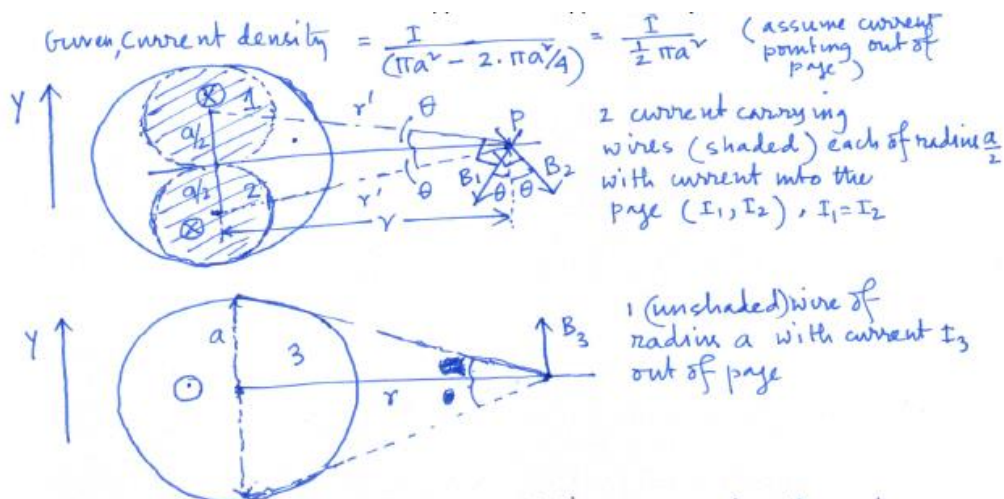 Given, Current density = I / (πa² - 2·πa²/4) = I / ½πa² (assume current pointing out of page)
Y
1
a/2
r'
θ
P
a/2
2
r'
θ
B₁
θ
θ
B₂
r
2 current carrying
wires (shaded) each of radius a/2
with current into the
page (I₁, I₂), I₁=I₂
Y
a
3
r
θ
B₃
1 (unshaded) wire of
radius a with current I₃
out of page